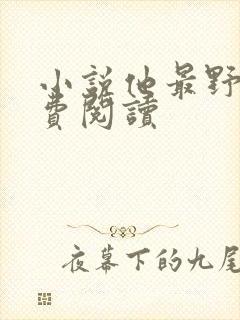 小說他最野
費閱讀
夜幕下的九尾